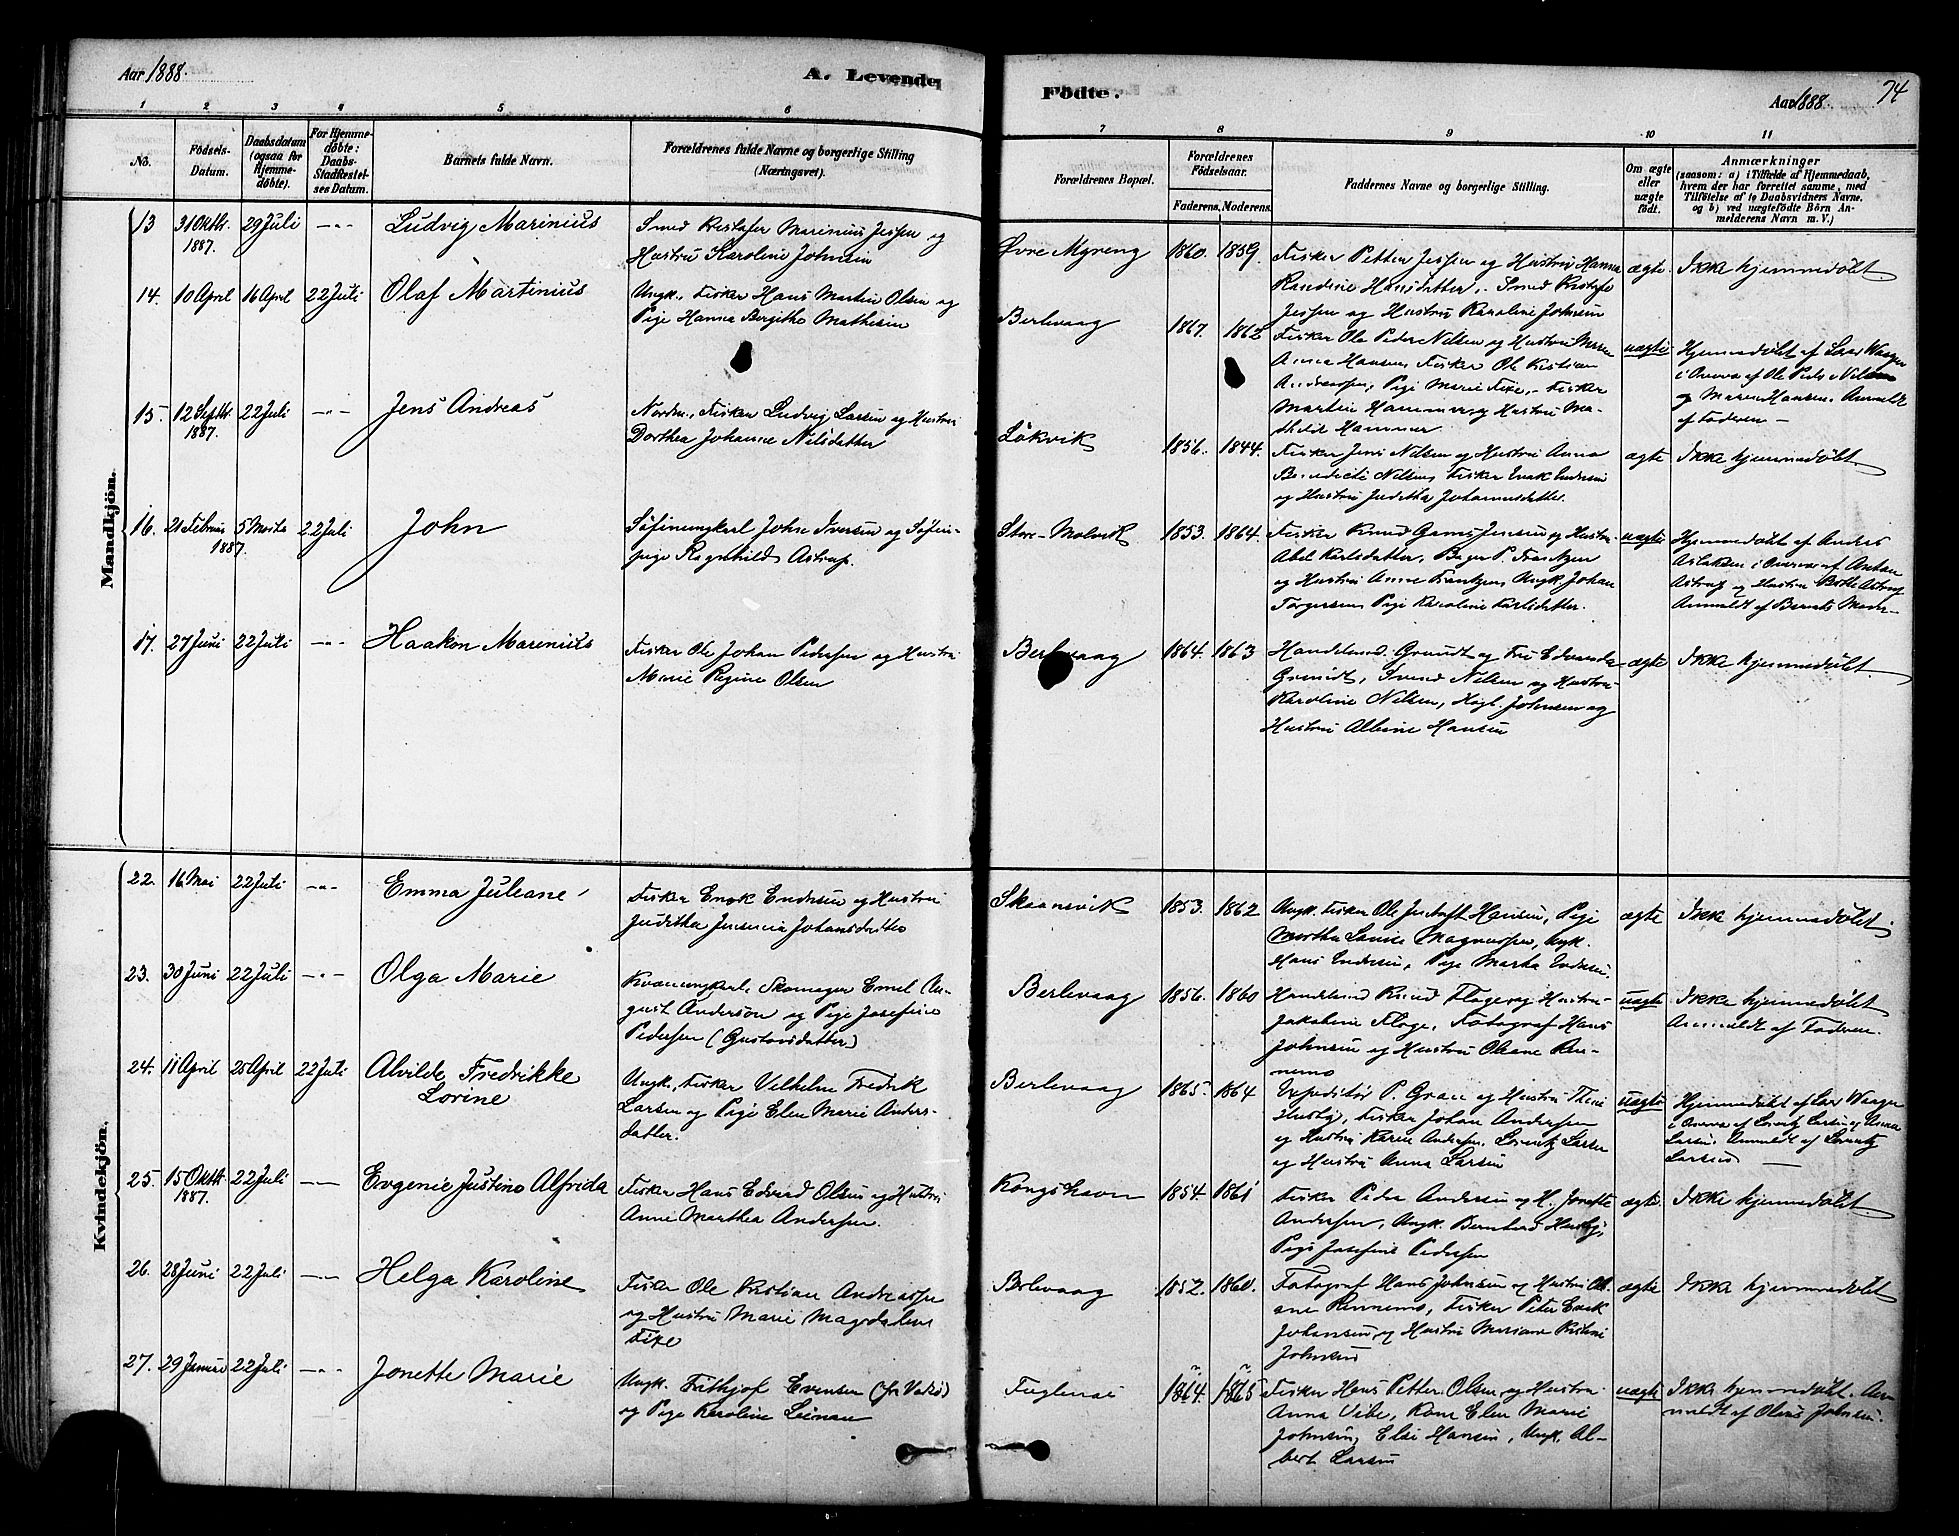 Aar 1888.
A. Levende
Födte.
Aar 1888.
74
1 2 3 4 5 6 7 8 9 10 11
No.
Födsels-
Datum.
Daabsdatum
(ogsaa for
Hjemme-
döbte).
For Hjemme-
döbte:
Daabs-
Stadfæstel-
ses Datum.
Barnets fulde Navn.
Forældrenes fulde Navne og borgerlige Stilling
(Næringsvei).
Forældrenes Bopæl.
Forældrenes
Födselsaar.
Faderens. Moderens.
Faddernes Navne og borgerlige Stilling.
Om ægte
eller
uægte
födt.
Anmærkninger
(saasom: a) i Tilfælde af Hjemmedaab,
hvem der har forrettet samme, med
Tilföielse af to Daabsvidners Navne.
og b) ved uægtefödte Börn An-
melderens Navn m. V.)
Mandkjön.
13 31 Oktbr. 1887. 29 Juli -"- Ludvig Marinius
Smed Kristofer Marinius Jessen og
Hustru Karoline Johnsen
Övre Myreng 1860. 1859.
Fisker Petter Jessen og Hustru Hanna
Randine Hansdatter, Smed Kristofer
Jessen og Hustru Karoline Johnsen
ægte. Ikke hjemmedöbt
14. 10 April 16 April 22 Juli Olaf Martinius
Ungk., Fisker Hans Martin Olsen og
Pige Hanna Bergitha Mathisen
Berlevaag 1867. 1862
Fisker Ole Peder Nilsen og Hustru Maren
Anna Hansen, Fisker Ole Kristian
Andreassen, Pige Marie Fixe, Fisker
Martin Hammer og Hustru Ma-
thilde Hammer
uægte Hjemmedöbt af Lars Waagen
i Overv. af Ole Peder Nilsen
og Maren Hansen. Anmeldt
af Faderen
15. 12 Septbr. 1887. 22 Juli -"- Jens Andreas
Nordm., Fisker Ludvig Larsen og Hustru
Dorthea Johanne Nilsdatter
Lökvik 1856. 1844.
Fisker Jens Nilsen og Hustru Anna
Benedicte Nilsen, Fisker Enok Endresen
og Hustru Juditha Johannesdatter.
ægte Ikke hjemmedöbt.
16. 21 Februar 1887. 5 Marts 22 Juli John
Söfinungkarl John Iversen og Söfin-
pige Ragnhild Astrup.
Store-Molvik 1853. 1864.
Fisker Knud Jensen og Hustru
Abel Karlsdatter, P. Frantzen
og Hustru Anne Frantzen, Ungk. Johan
Torgersen, Pige Karoline Karlsdatter.
uægte Hjemmedöbt af Anders
Aslaksen i Overv. af Anton
Astrup og Hustru Astrup
Anmeldt af Barnets Moder
17. 27 Juni 22 Juli -"- Haakon Marinius
Fisker Ole Johan Pedersen og Hustru
Marie Regine Olsen
Berlevaag 1864. 1863
Handelsmd. Grundt og Fru Edvarda
Grundt, Svend Nilsen og Hustru
Karoline Nilsen, Johnsen og
Hustru Albine Hansen
ægte Ikke hjemmedöbt.
Kvindekjön.
22. 16 Mai 22 Juli -"- Emma Juleane
Fisker Enok Endresen og Hustru
Juditha Johansdatter
Skaansvik 1853. 1862
Ungk. Fisker Ole Gustaft Hansen, Pige
Martha Lovise Magnussen, Ungk.
Hans Endresen, Pige Marta Endresen.
ægte Ikke hjemmedöbt.
23. 30 Juni 22 Juli -"- Olga Marie
Kvænungkarl, Skomager Emil Au-
gust Anderson og Pige Josefine
Pedersen (Gustavsdatter)
Berlevaag 1856. 1860
Handelsmd Knud Floge og Hustru
Jakobine Floge, Fotograf Hans
Johnsen og Hustru Oleane Ren-
nemo
uægte Ikke hjemmedöbt
Anmeldt af Faderen.
24. 11 April 25 April 22 Juli Alvilde Fredrikke
Lovine
Ungk., Fisker Vilhelm Fredrik
Larsen og Pige Elen Marie Anders-
datter.
Berlevaag 1865. 1864
Expeditör P. Gran og Hustru Thine
Husby, Fisker Johan Andersen
og Hustru Karen Andersen, Lorentz Larsen
og Hustru Anna Larsen
uægte Hjemmedöbt af Lars Waagen
i Overv. af Lorentz Larsen og Anna
Larsen. Anmeldt af Lorentz
Larsen
25. 15 Oktbr. 1887. 22 Juli -"- Evgenie Justine Alfrida
Fisker Hans Edvard Olsen og Hustru
Anne Marthea Andersen.
Kongshavn 1854. 1861
Fisker Peder Andersen og H. Jonette
Andersen, Ungk. Bernhard Husby,
Pige Josefine Pedersen
ægte. Ikke hjemmedöbt.
26. 28 Juni 22 Juli -"- Helga Karoline
Fisker Ole Kristian Andreassen
og Hustru Marie Magdalene
Fixe
Berlevaag 1852. 1860.
Fotograf Hans Johnsen og Hustru Ole-
ane Rennemo, Fisker Peter Enok
Johansen og Hustru Mariane Kristine
Johnsen
ægte Ikke hjemmedöbt
27. 29 Januar 22 Juli -"- Jonette Marie
Ungk. Frithjof Evensen (fra Vadsö)
og Pige Karoline Leinan
Fuglenæs 1864. 1865
Fisker Hans Petter Olsen og Hustru
Anna Vibe, Kone Elen Marie
Johnsen, Elsi Hansen, Ungk. Al-
bert Larsen
uægte Ikke hjemmedöbt. An-
meldt af Johnsen.